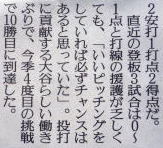 2安打1打点2得点だ。
直近の登板3試合は0〜
1点と打線の援護が乏しく
ても、「いいピッチングを
していれば必ずチャンスは
あると思っていた」。投打
に貢献する大谷らしい働き
ぶりで、今季4度目の挑戦
で10勝目に到達した。